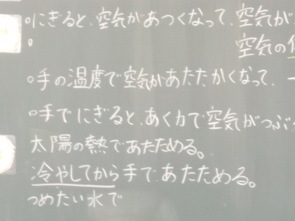 ○にぎると、空気があつくなって、空気が
空気の
○
○手の温度で空気があたたかくなって、
○手でにぎると、あく力で空気がつぶ
太陽の熱であたためる。
冷やしてから手であたためる。
つめたい水で